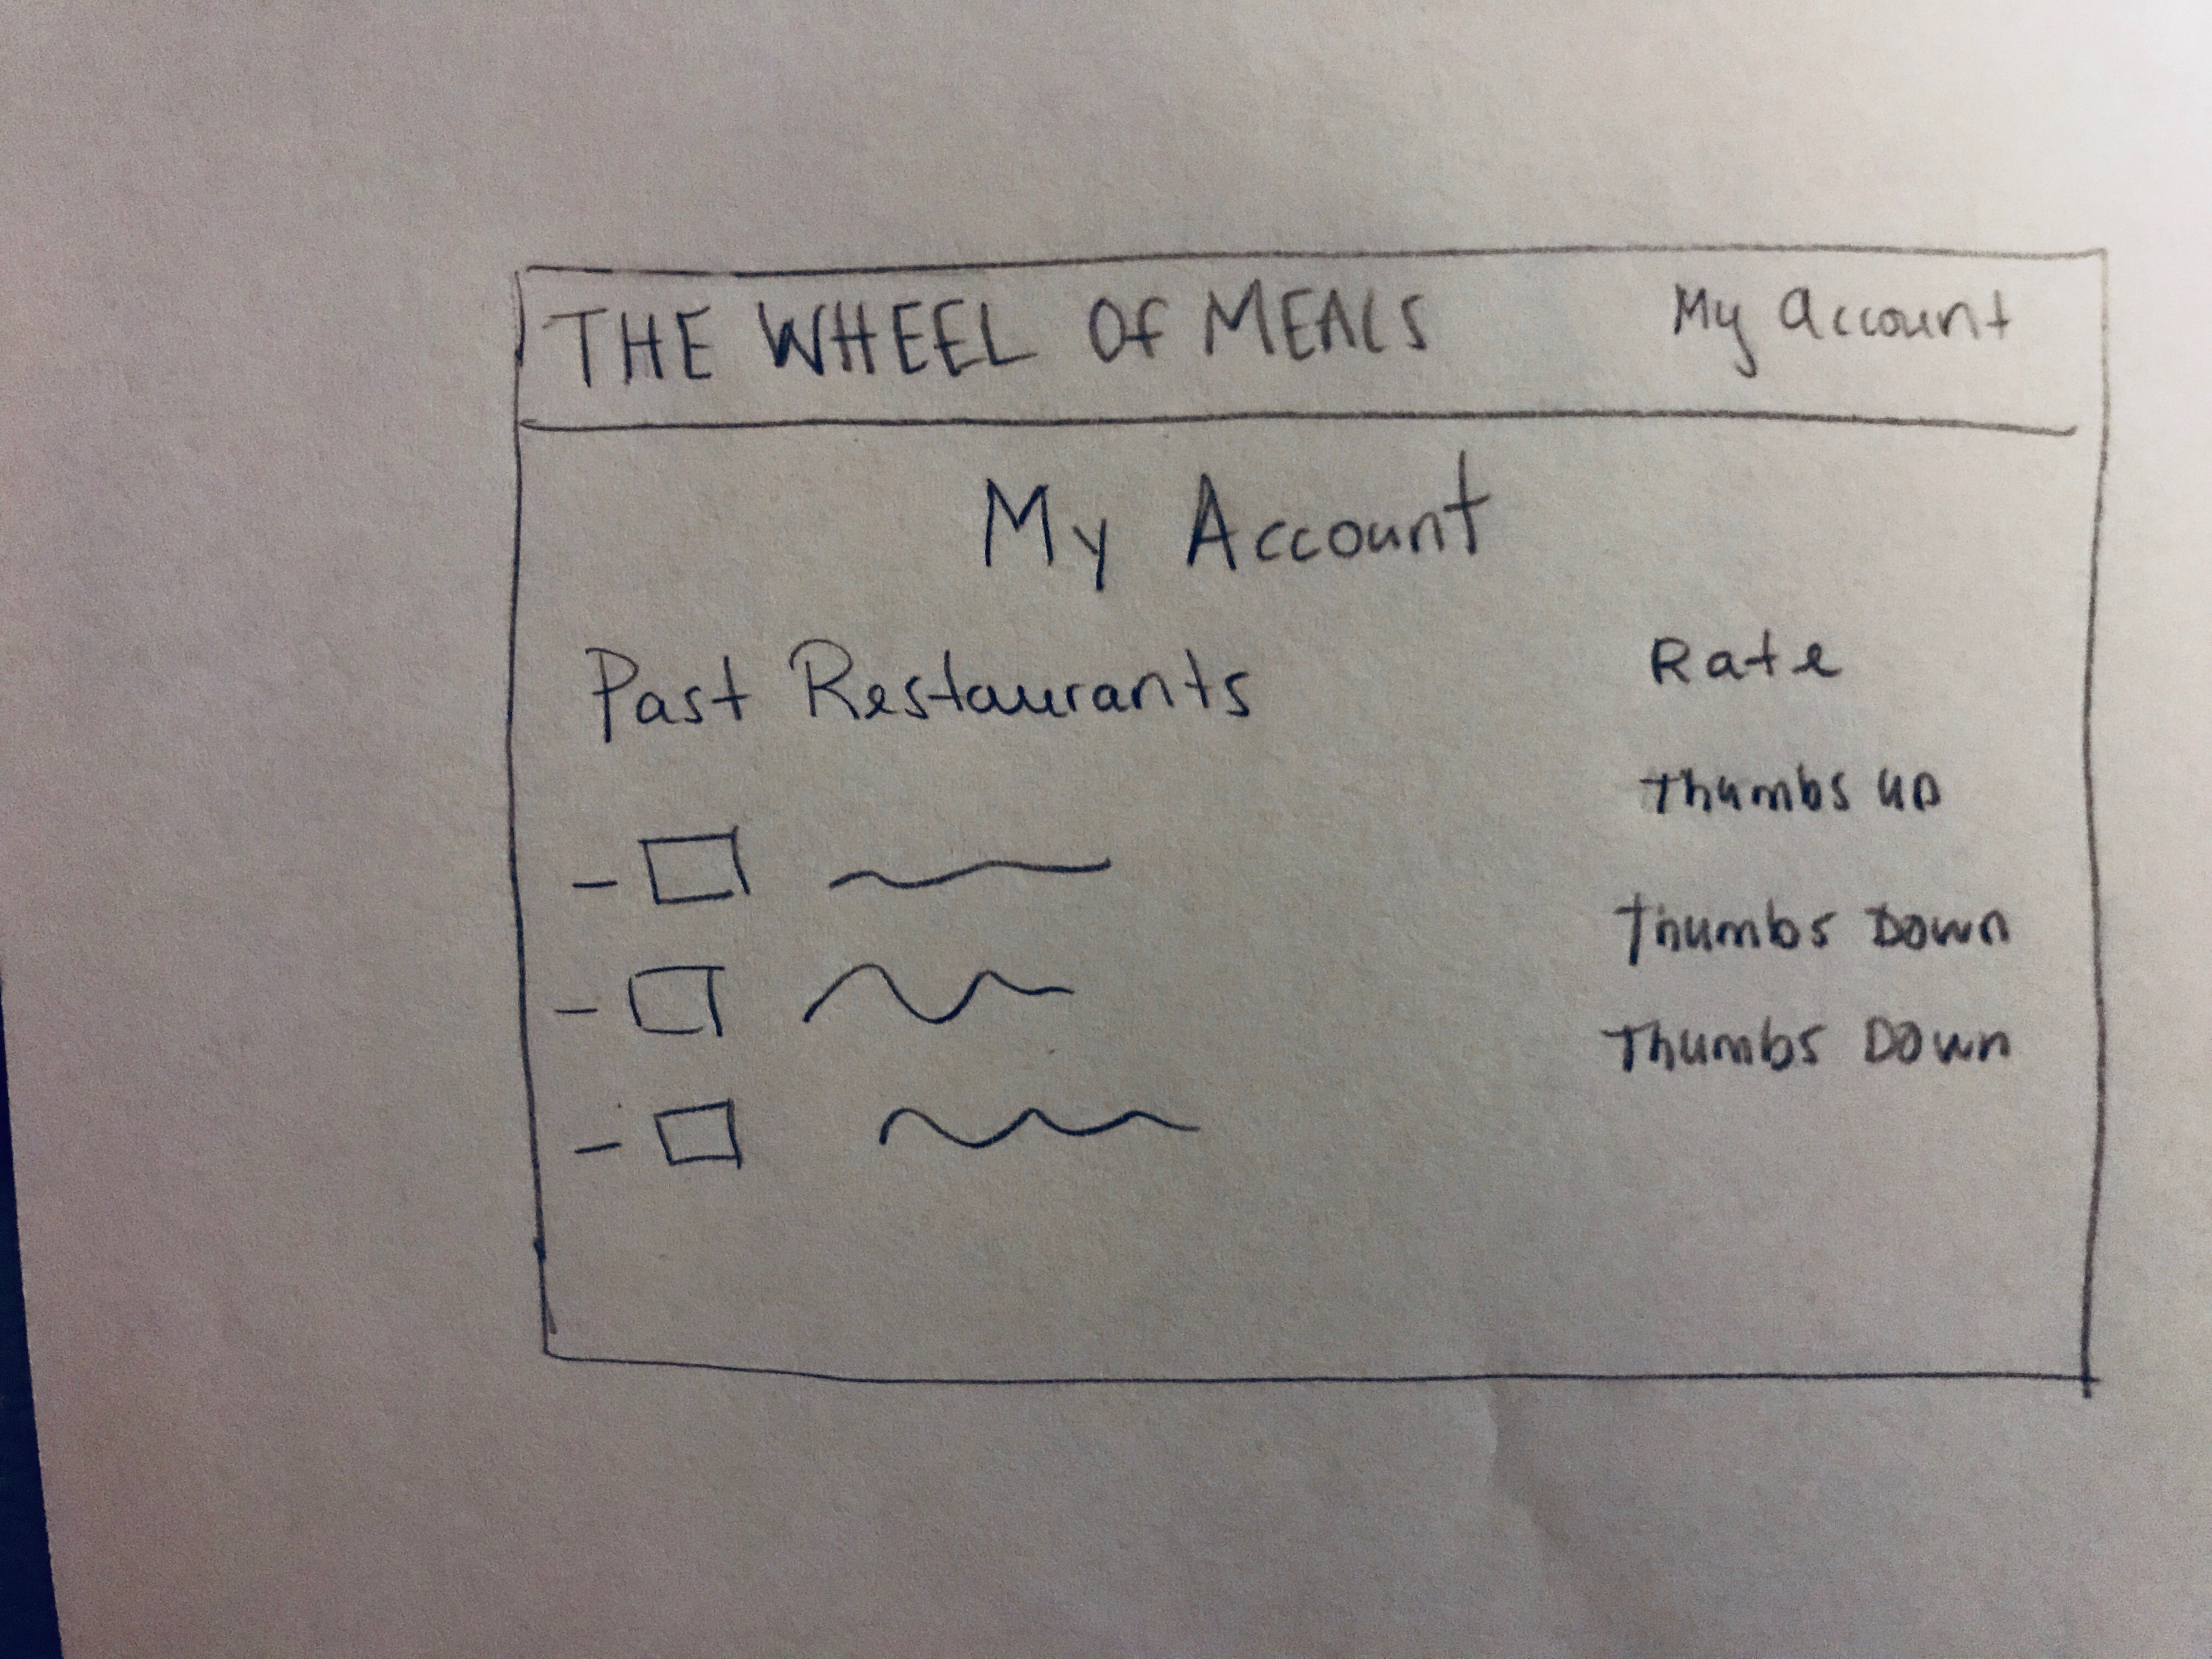 THE WHEEL OF MEALS My Account
My Account
Past Restaurants Rate
Thumbs up
Thumbs Down
Thumbs Down